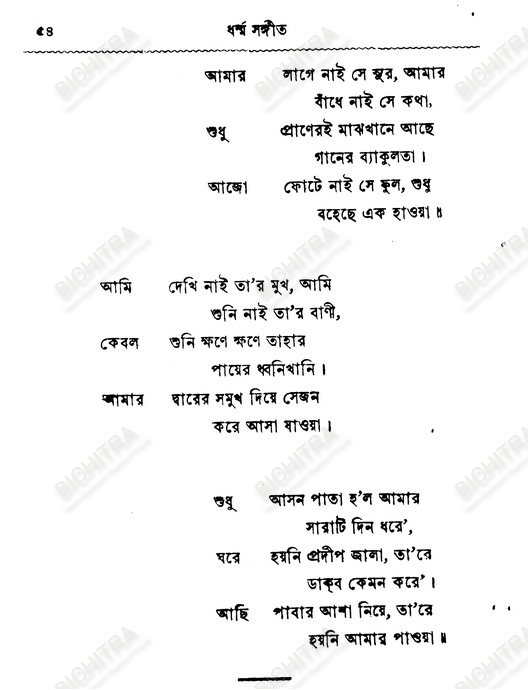 ৫৪ ধর্ম্ম সঙ্গীত
আমার লাগে নাই সে সুর, আমার
বাঁধে নাই সে কথা,
শুধু প্রাণেরই মাঝখানে আছে
গানের ব্যাকুলতা।
আজো ফোটে নাই সে ফুল, শুধু
বহেছে এক হাওয়া॥
আমি দেখি নাই তা'র মুখ, আমি
শুনি নাই তা'র বাণী,
কেবল শুনি ক্ষণে ক্ষণে তাহার
পায়ের ধ্বনিখানি।
আমার দ্বারের সমুখ দিয়ে সেজন
করে আসা যাওয়া।
শুধু আসন পাতা হ'ল আমার
সারাটি দিন ধরে',
ঘরে হয়নি প্রদীপ জ্বালা, তা'রে
ডাক্‌ব কেমন করে'।
আছি পাবার আশা নিয়ে, তা'রে
হয়নি আমার পাওয়া॥
BICHITRA